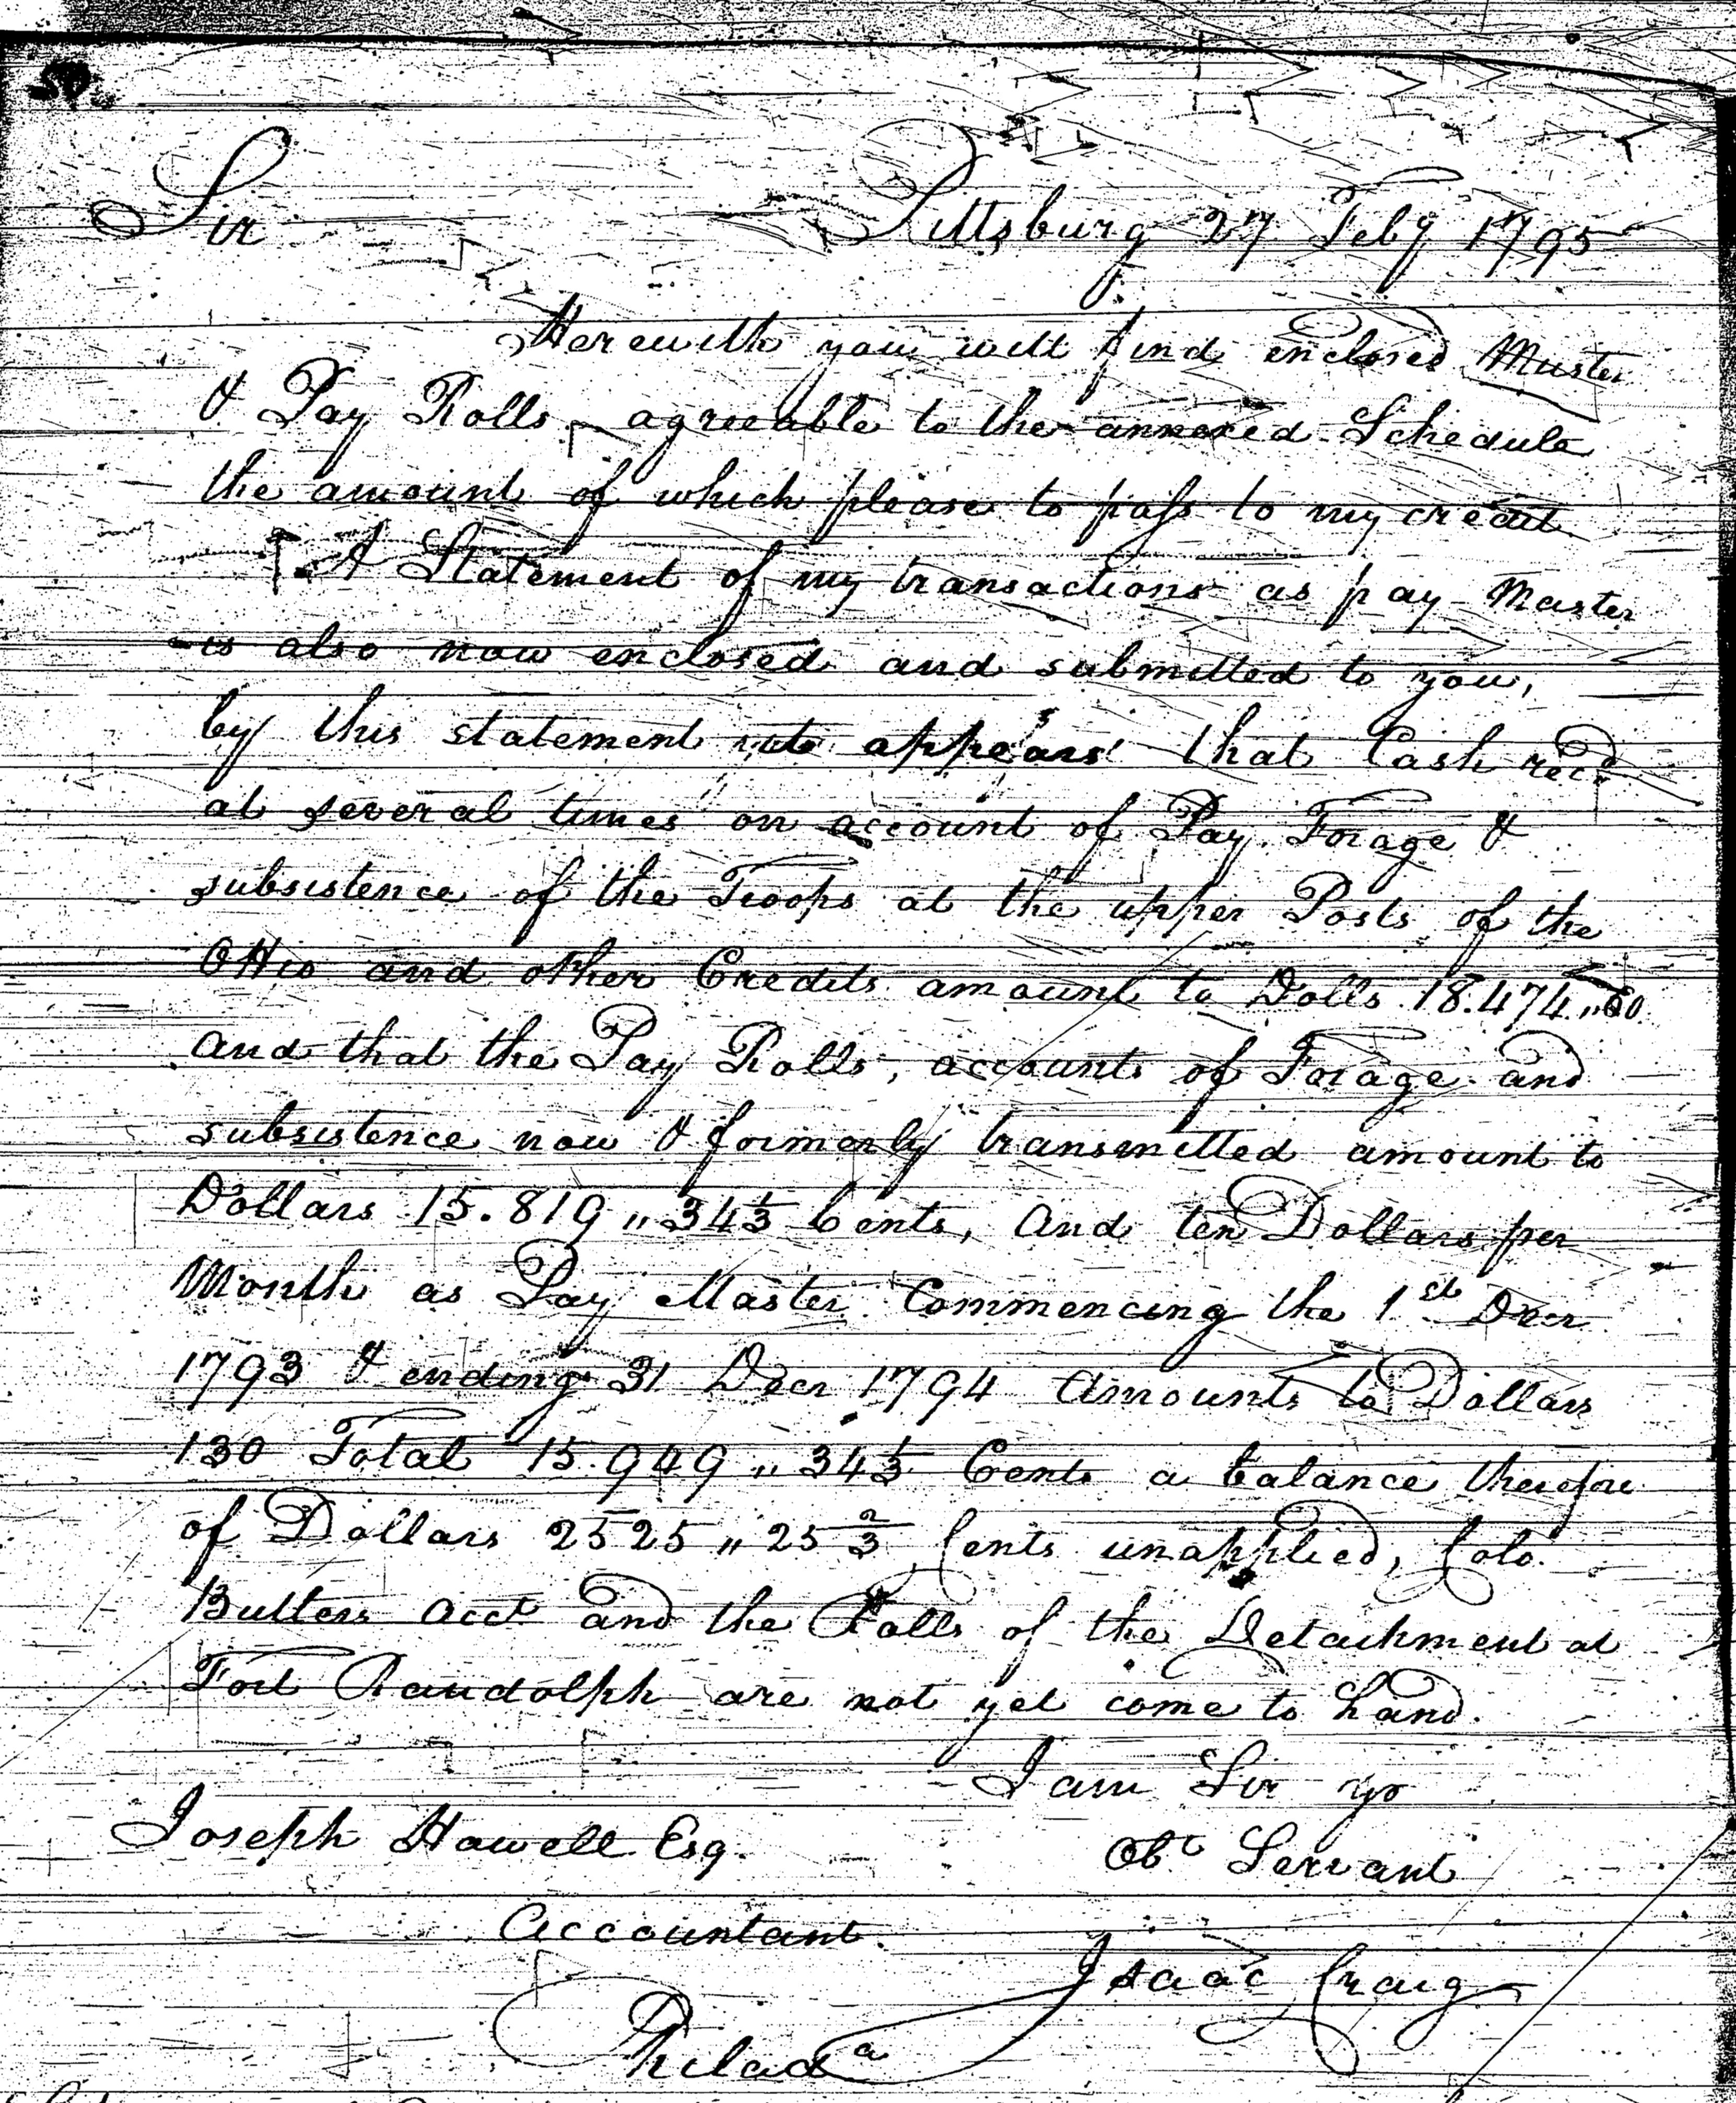 Sir Pittsburg 27 Feby 1795
Herewith you will find enclosed Muster
& Pay Rolls agreeable to the annexed Schedule
the amount of which please to pass to my credit
A Statement of my transactions as pay Master
is also now enclosed and submitted to you,
by this statement it appears that Cash recd
at several times on account of Pay Forage &
subsistence of the Troops at the upper Posts of the
Ohio and other Credits amount to Dolls 18.474.,,60
and that the Pay Rolls, account of Forage and
subsistence now & formerly transmitted amount to
Dollars 15.819,,34⅓ Cents, And ten Dollars per
Month as Pay Master Commencing the 1st Decr
1793 & ending 31 Decr 1794 Amounts to Dollars
130 Total 15.949,,34⅓ Cents a balance therefore
of Dollars 2525,,25⅔ Cents unapplied, Colo.
Butlers acct and the Rolls of the Detachment at
Fort Randolph are not yet come to hand.
I am Sir yr
Joseph Howell Esq.
Obt Servant
Accountant.
Isaac Craig
Philada